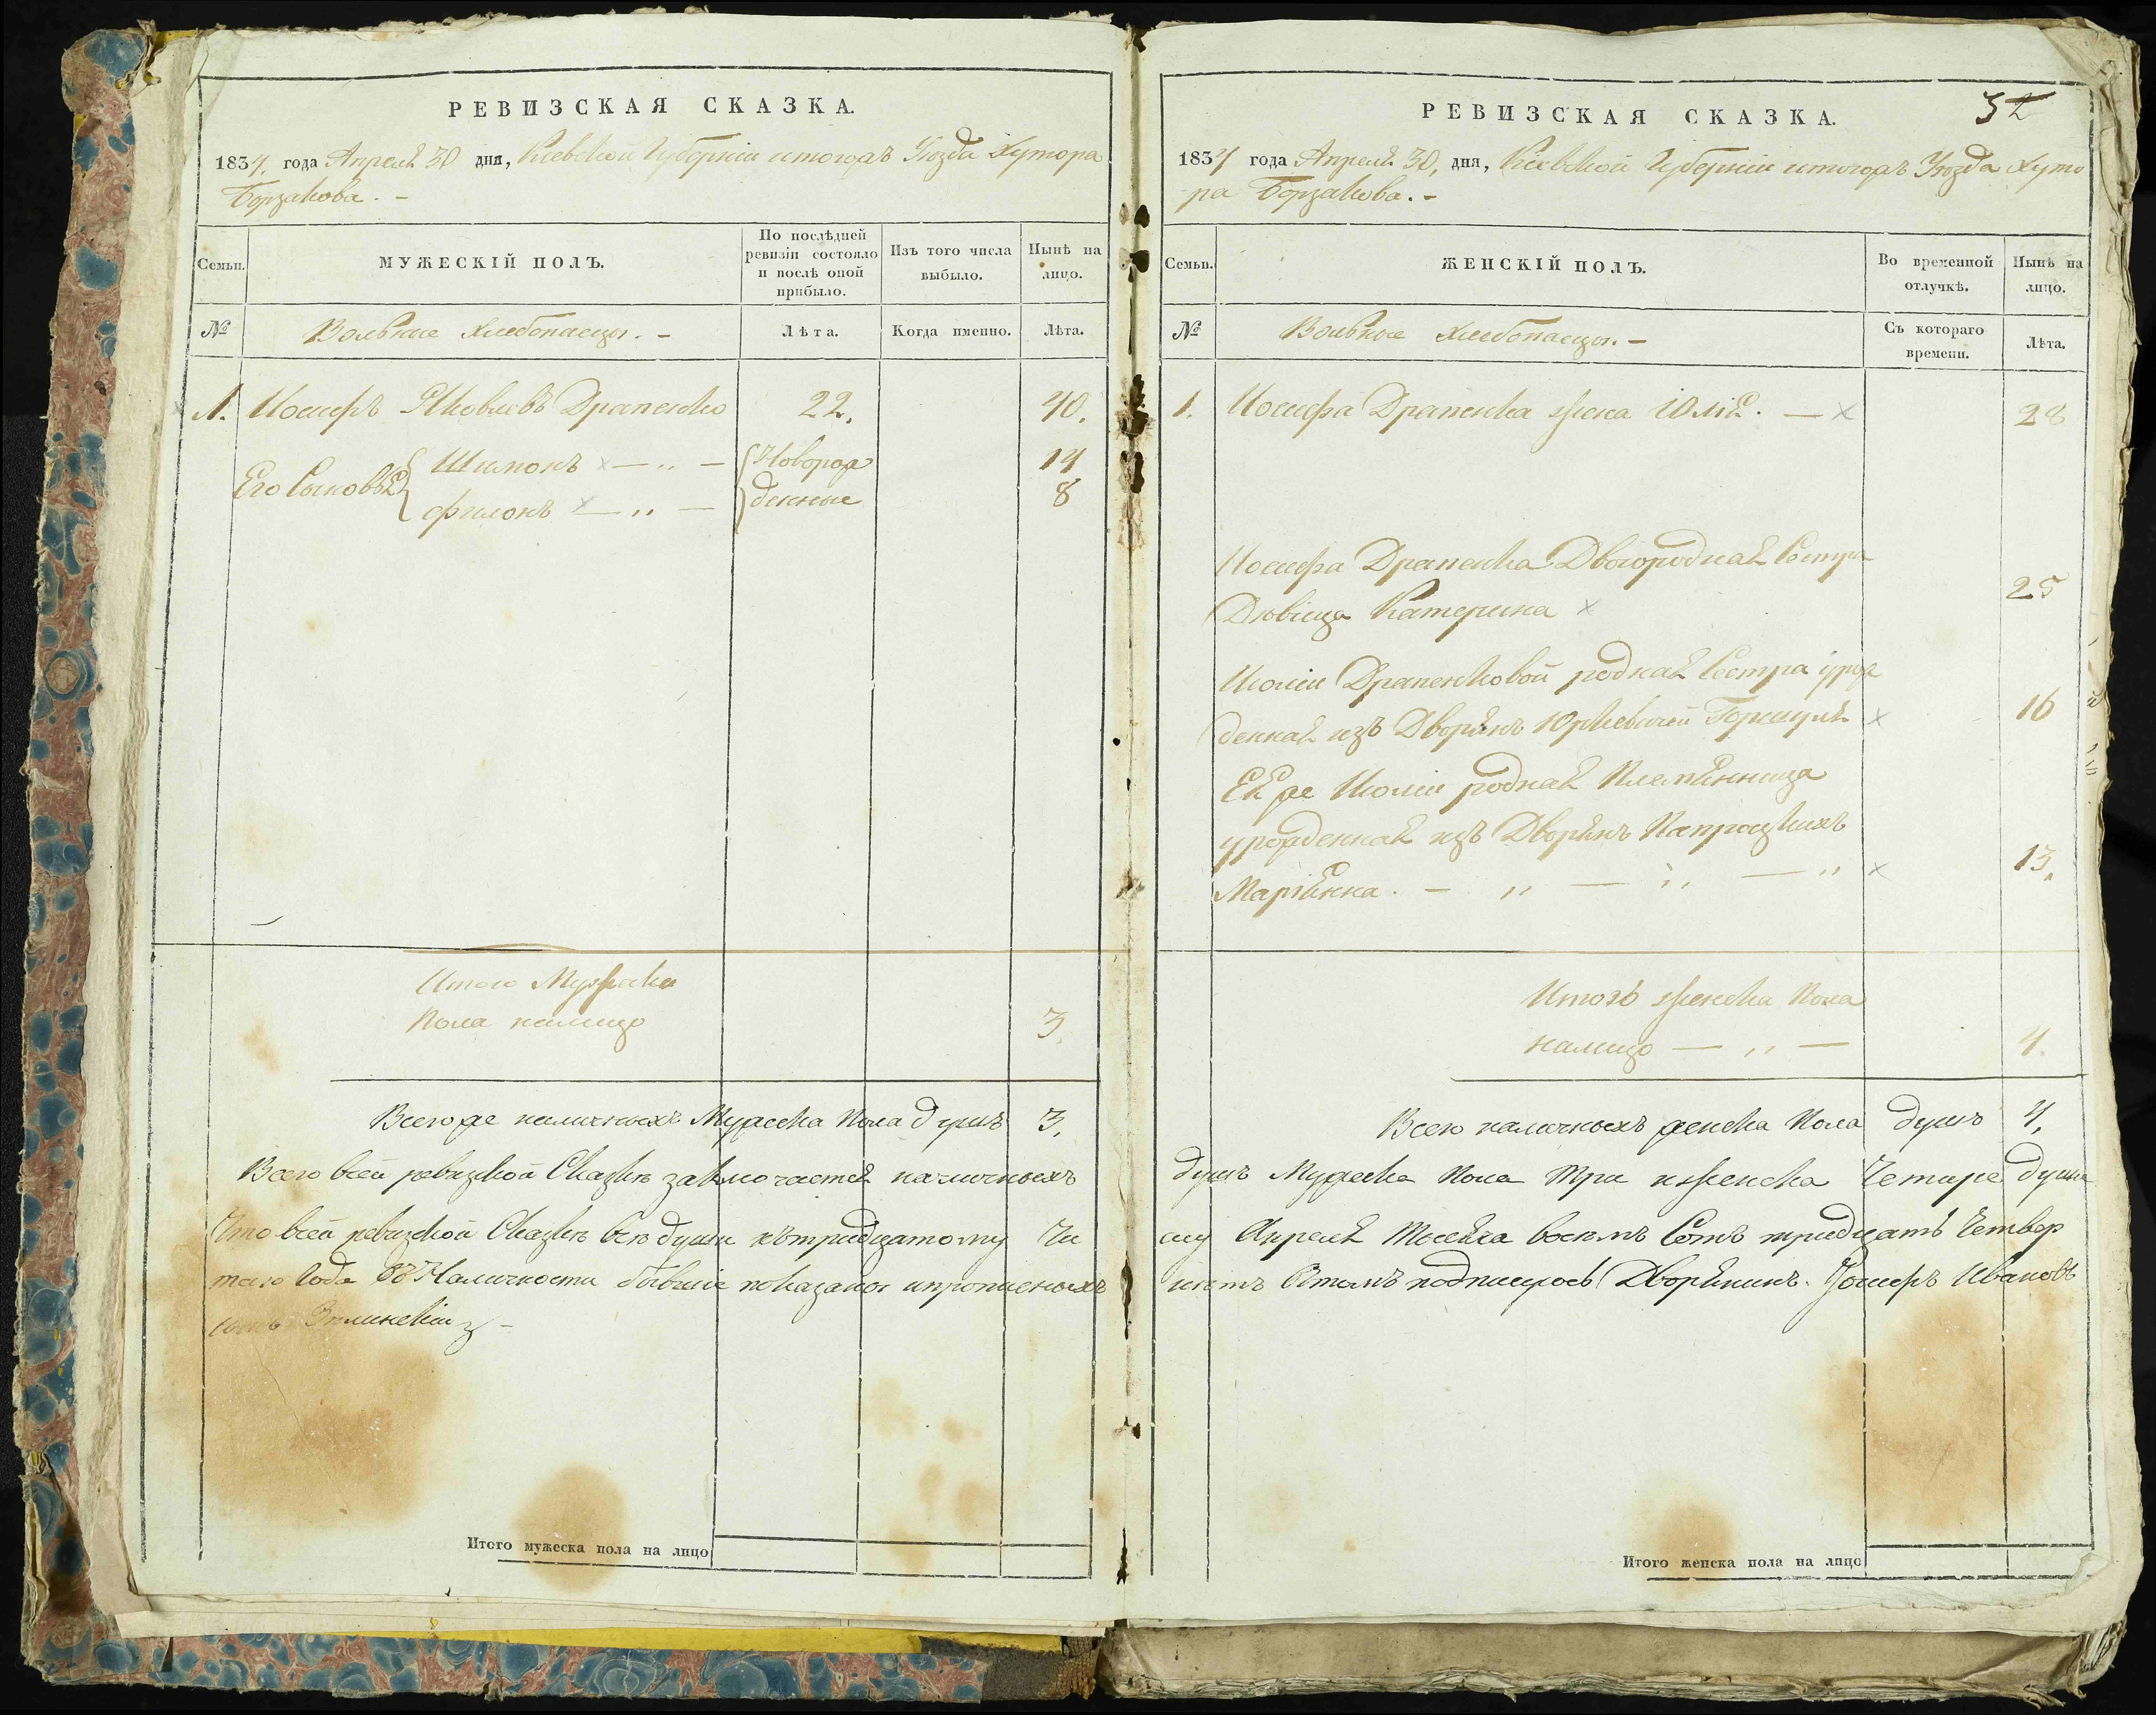 РЕВИЗСКАЯ СКАЗКА.
1834. года Апреля 30 дня, Киевской Губернии итогожъ Уезда Хутора
Борзакова. -
Семьи.
МУЖЕСКІЙ ПОЛЪ.
По послѣдней ревизіи состояло и послѣ оной прибыло.
Изъ того числа выбыло.
Нынѣ на лицо.
№
Вольные хлебопасцы. -
Лѣта.
Когда именно.
Лѣта.
1. Иосифъ Яковлевъ Драпенко 22. 40.
Его Сыновья Шимонъ х — „ — Новорож 14
филонъ х — „ — денные 8
Итого Мужеска
Пола налицо 3.
Всегоже наличныхъ Мужеска Пола душъ 3.
Всего всей ревизкой Сказке заключается наличныхъ
Что всей ревизкой Сказке все души ктридцатому Чи
таго Года въ Наличности бывшіе показаны ипрописныхъ
Итого мужеска пола на лицо
РЕВИЗСКАЯ СКАЗКА.
32
1834 года Апреля 30, дня, Киевской Губернии итогожъ Уезда Хуто
ра Борзакова. -
Семьи.
ЖЕНСКІЙ ПОЛЪ.
Во временной отлучкѣ.
Нынѣ на лицо.
№
Вольные хлебопасцы. -
Съ котораго времени.
Лѣта.
1. Иосифа Драпенка жена Юлія. — х 28
Иосифа Драпенка Двоюродная Сестра
Дѣвица Катерина х 25
Июлии Драпенковой родная Сестра урож
денная изъ Дворянъ Юркевичей х 16
Ея же Июлии родная Племянница
урожденная изъ Дворянъ Папроцкихъ
Маріянна. — „ — „ — „ х 13.
Итогъ женска Пола
налицо — „ — 4.
Всего наличныхъ женска Пола душъ 4.
душъ Мужеска Пола Три иженска Четыре душы
слу Апреля Тысяча восемъ Сотъ тридцать Четвер
нетъ Втомъ подписуюсь Дворянинъ. Иосифъ Ивановъ
Итого женска пола на лицо